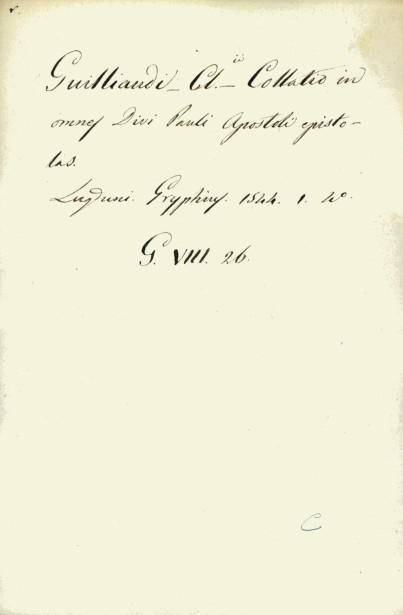 Guilliaudi _ Cl. _ ii Collatio in
omnes Divi Pauli Apostoli episto-
las.
Luguni. Gryphius. 1544. 1. 4o.
G. VIII. 26.
C